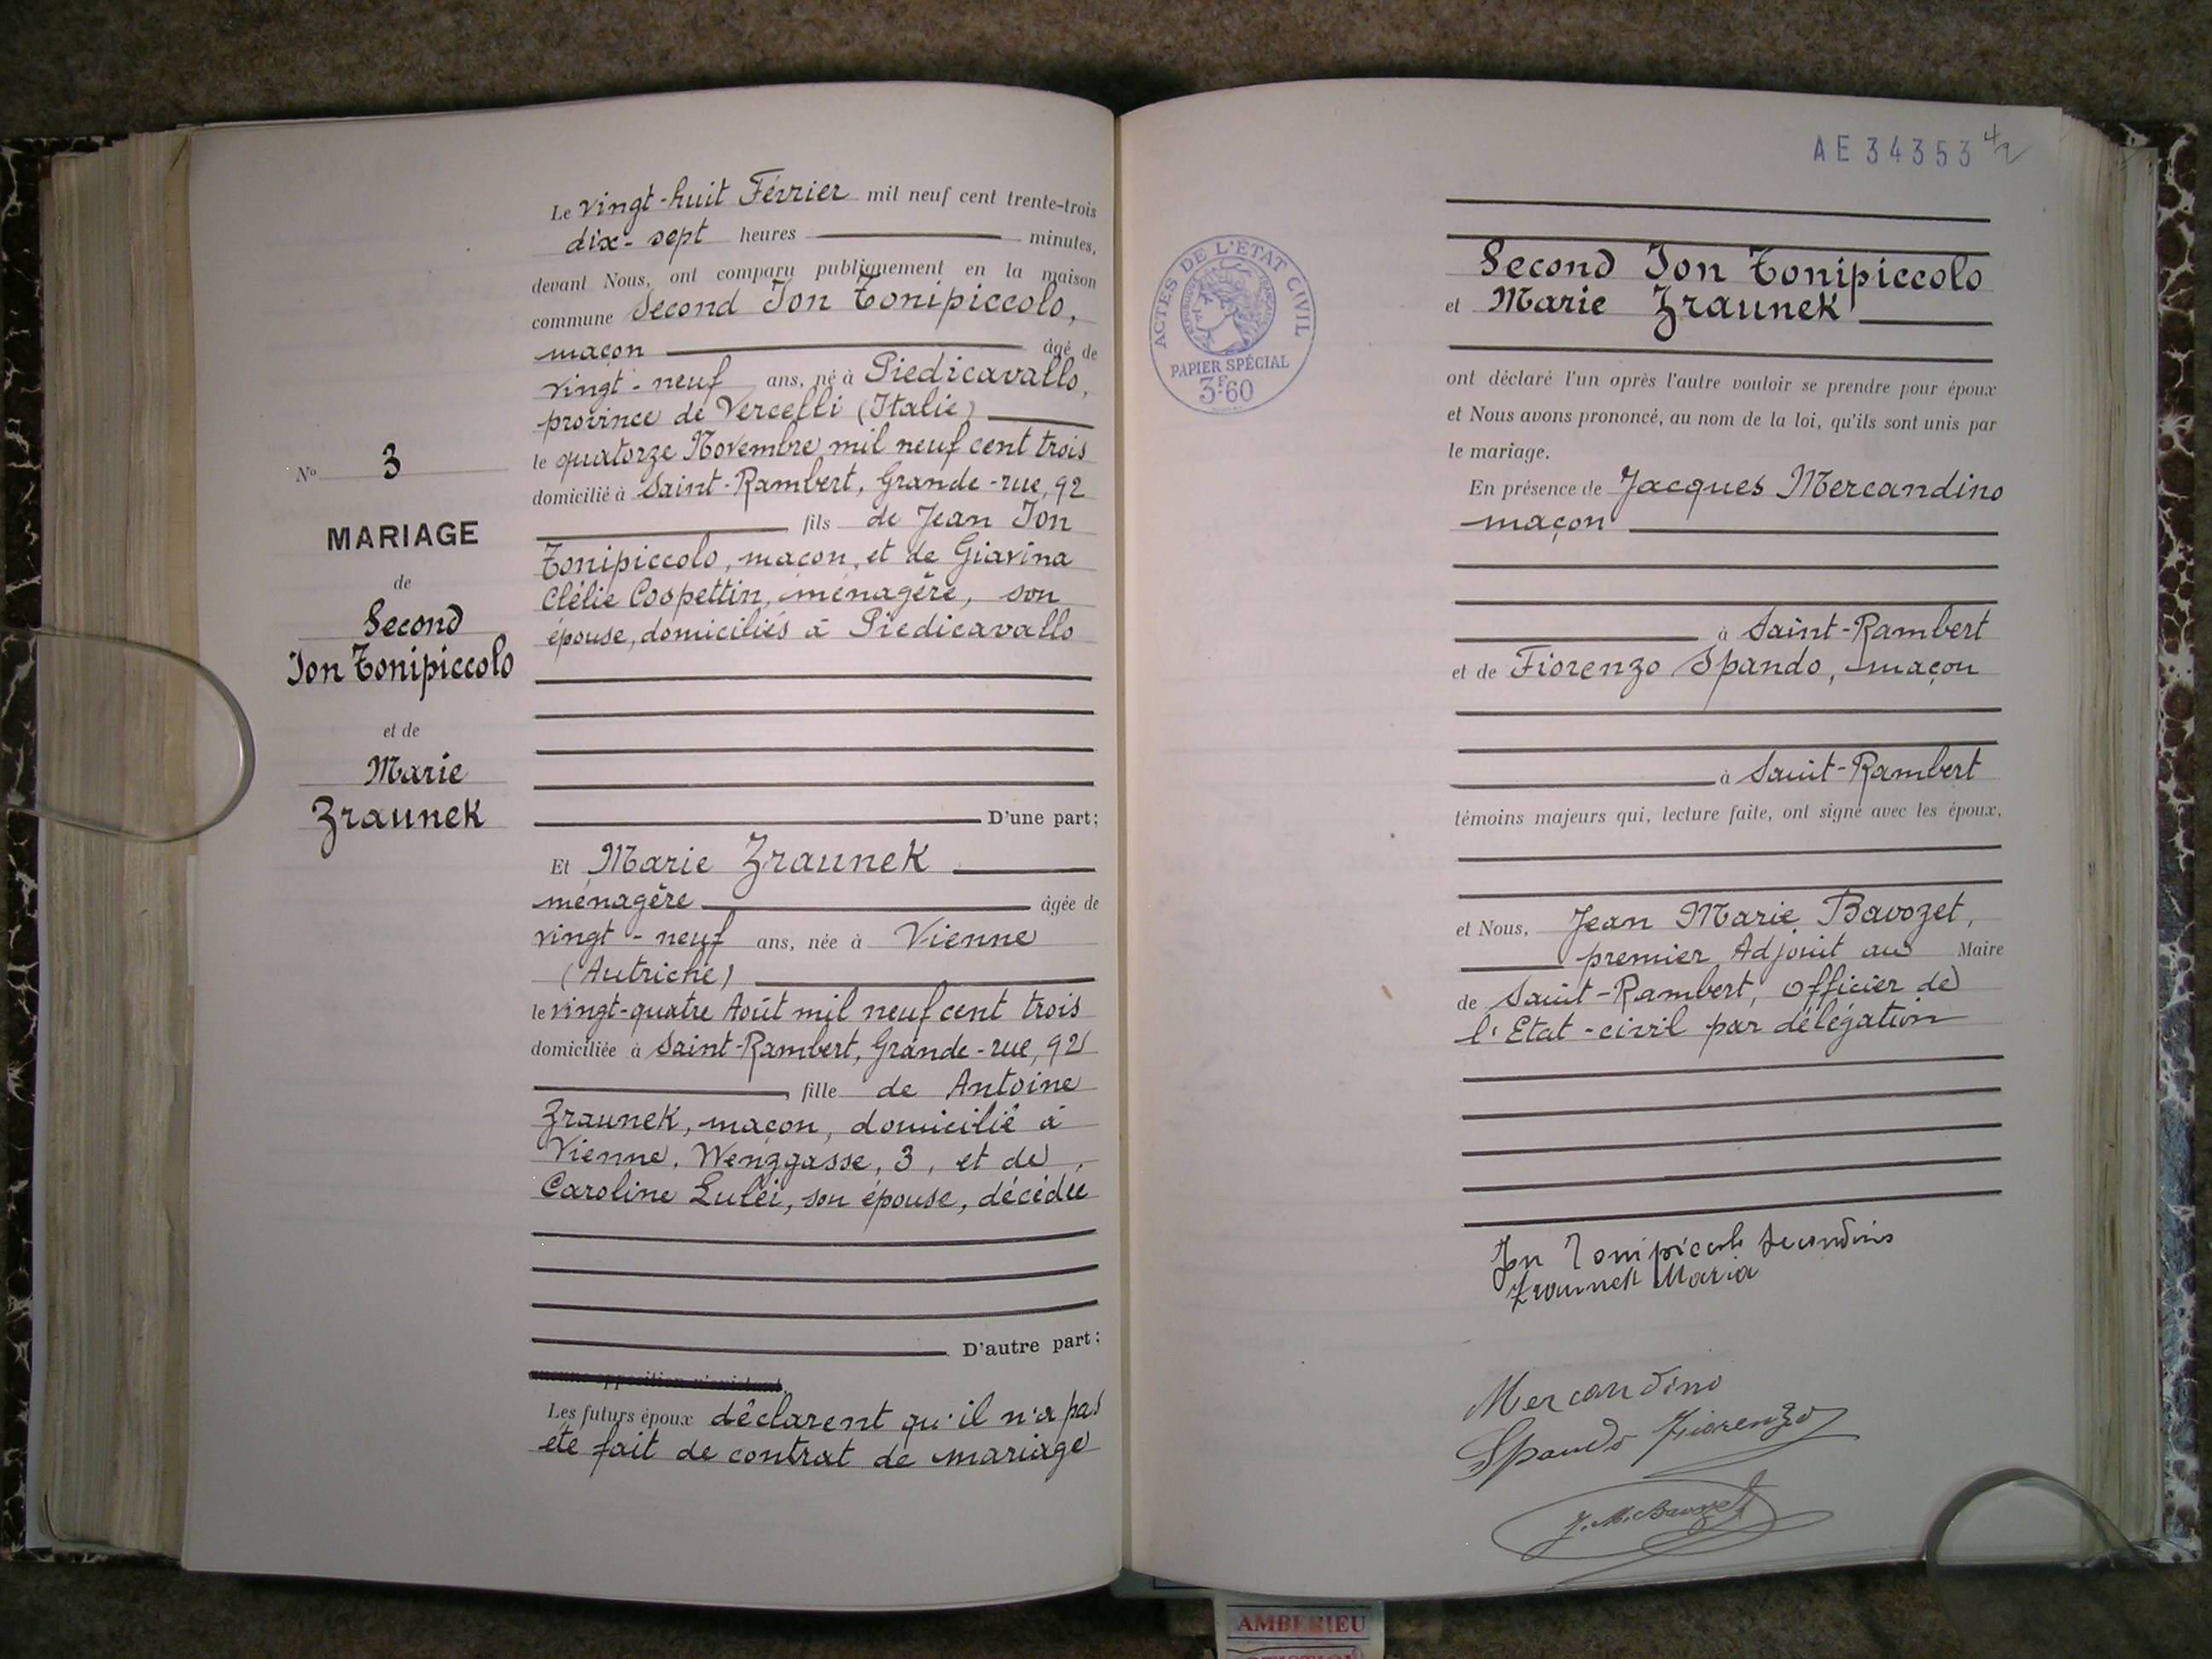 Le vingt-huit Février mil neuf cent trente-trois
dix-sept heures minutes,
devant Nous, ont comparu publiquement en la maison
commune Second Jon Tonipiccolo,
maçon âgé de
vingt-neuf ans, né à Piedicavallo,
province de Vercelli (Italie)
le quatorze Novembre mil neuf cent trois
domicilié à Saint-Rambert, Grande-rue, 92
fils de Jean Jon
Tonipiccolo, maçon, et de Giavina
Clélie Cospettin, ménagère, son
épouse, domiciliés à Piedicavallo
D'une part;
Et Marie Zraunek
ménagère âgée de
vingt-neuf ans, née à Vienne
(Autriche)
le vingt-quatre Août mil neuf cent trois
domiciliée à Saint-Rambert, Grande-rue, 92
fille de Antoine
Zraunek, maçon, domicilié à
Vienne, Wenggasse, 3, et de
Caroline Lulei, son épouse, décédée
D'autre part;
aucune opposition n'existant
Les futurs époux déclarent qu'il n'a pas
été fait de contrat de mariage
N° 3
MARIAGE
de
Second
Jon Tonipiccolo
et de
Marie
Zraunek
AE 34353
ACTES DE L'ÉTAT CIVIL
RÉPUBLIQUE FRANÇAISE
PAPIER SPÉCIAL
3F60
Second Jon Tonipiccolo
et Marie Zraunek
ont déclaré l'un après l'autre vouloir se prendre pour époux
et Nous avons prononcé, au nom de la loi, qu'ils sont unis par
le mariage.
En présence de Jacques Mercandino
maçon
à Saint-Rambert
et de Fiorenzo Spando, maçon
à Saint-Rambert
témoins majeurs qui, lecture faite, ont signé avec les époux,
et Nous, Jean Marie Bavozet,
premier Adjoint au Maire
de Saint-Rambert, officier de
l'Etat-civil par délégation
Jon Tonipiccolo Secondino
Zraunek Maria
Mercandino
Spando Fiorenzo
J. M. Bavozet
AMBERIEU